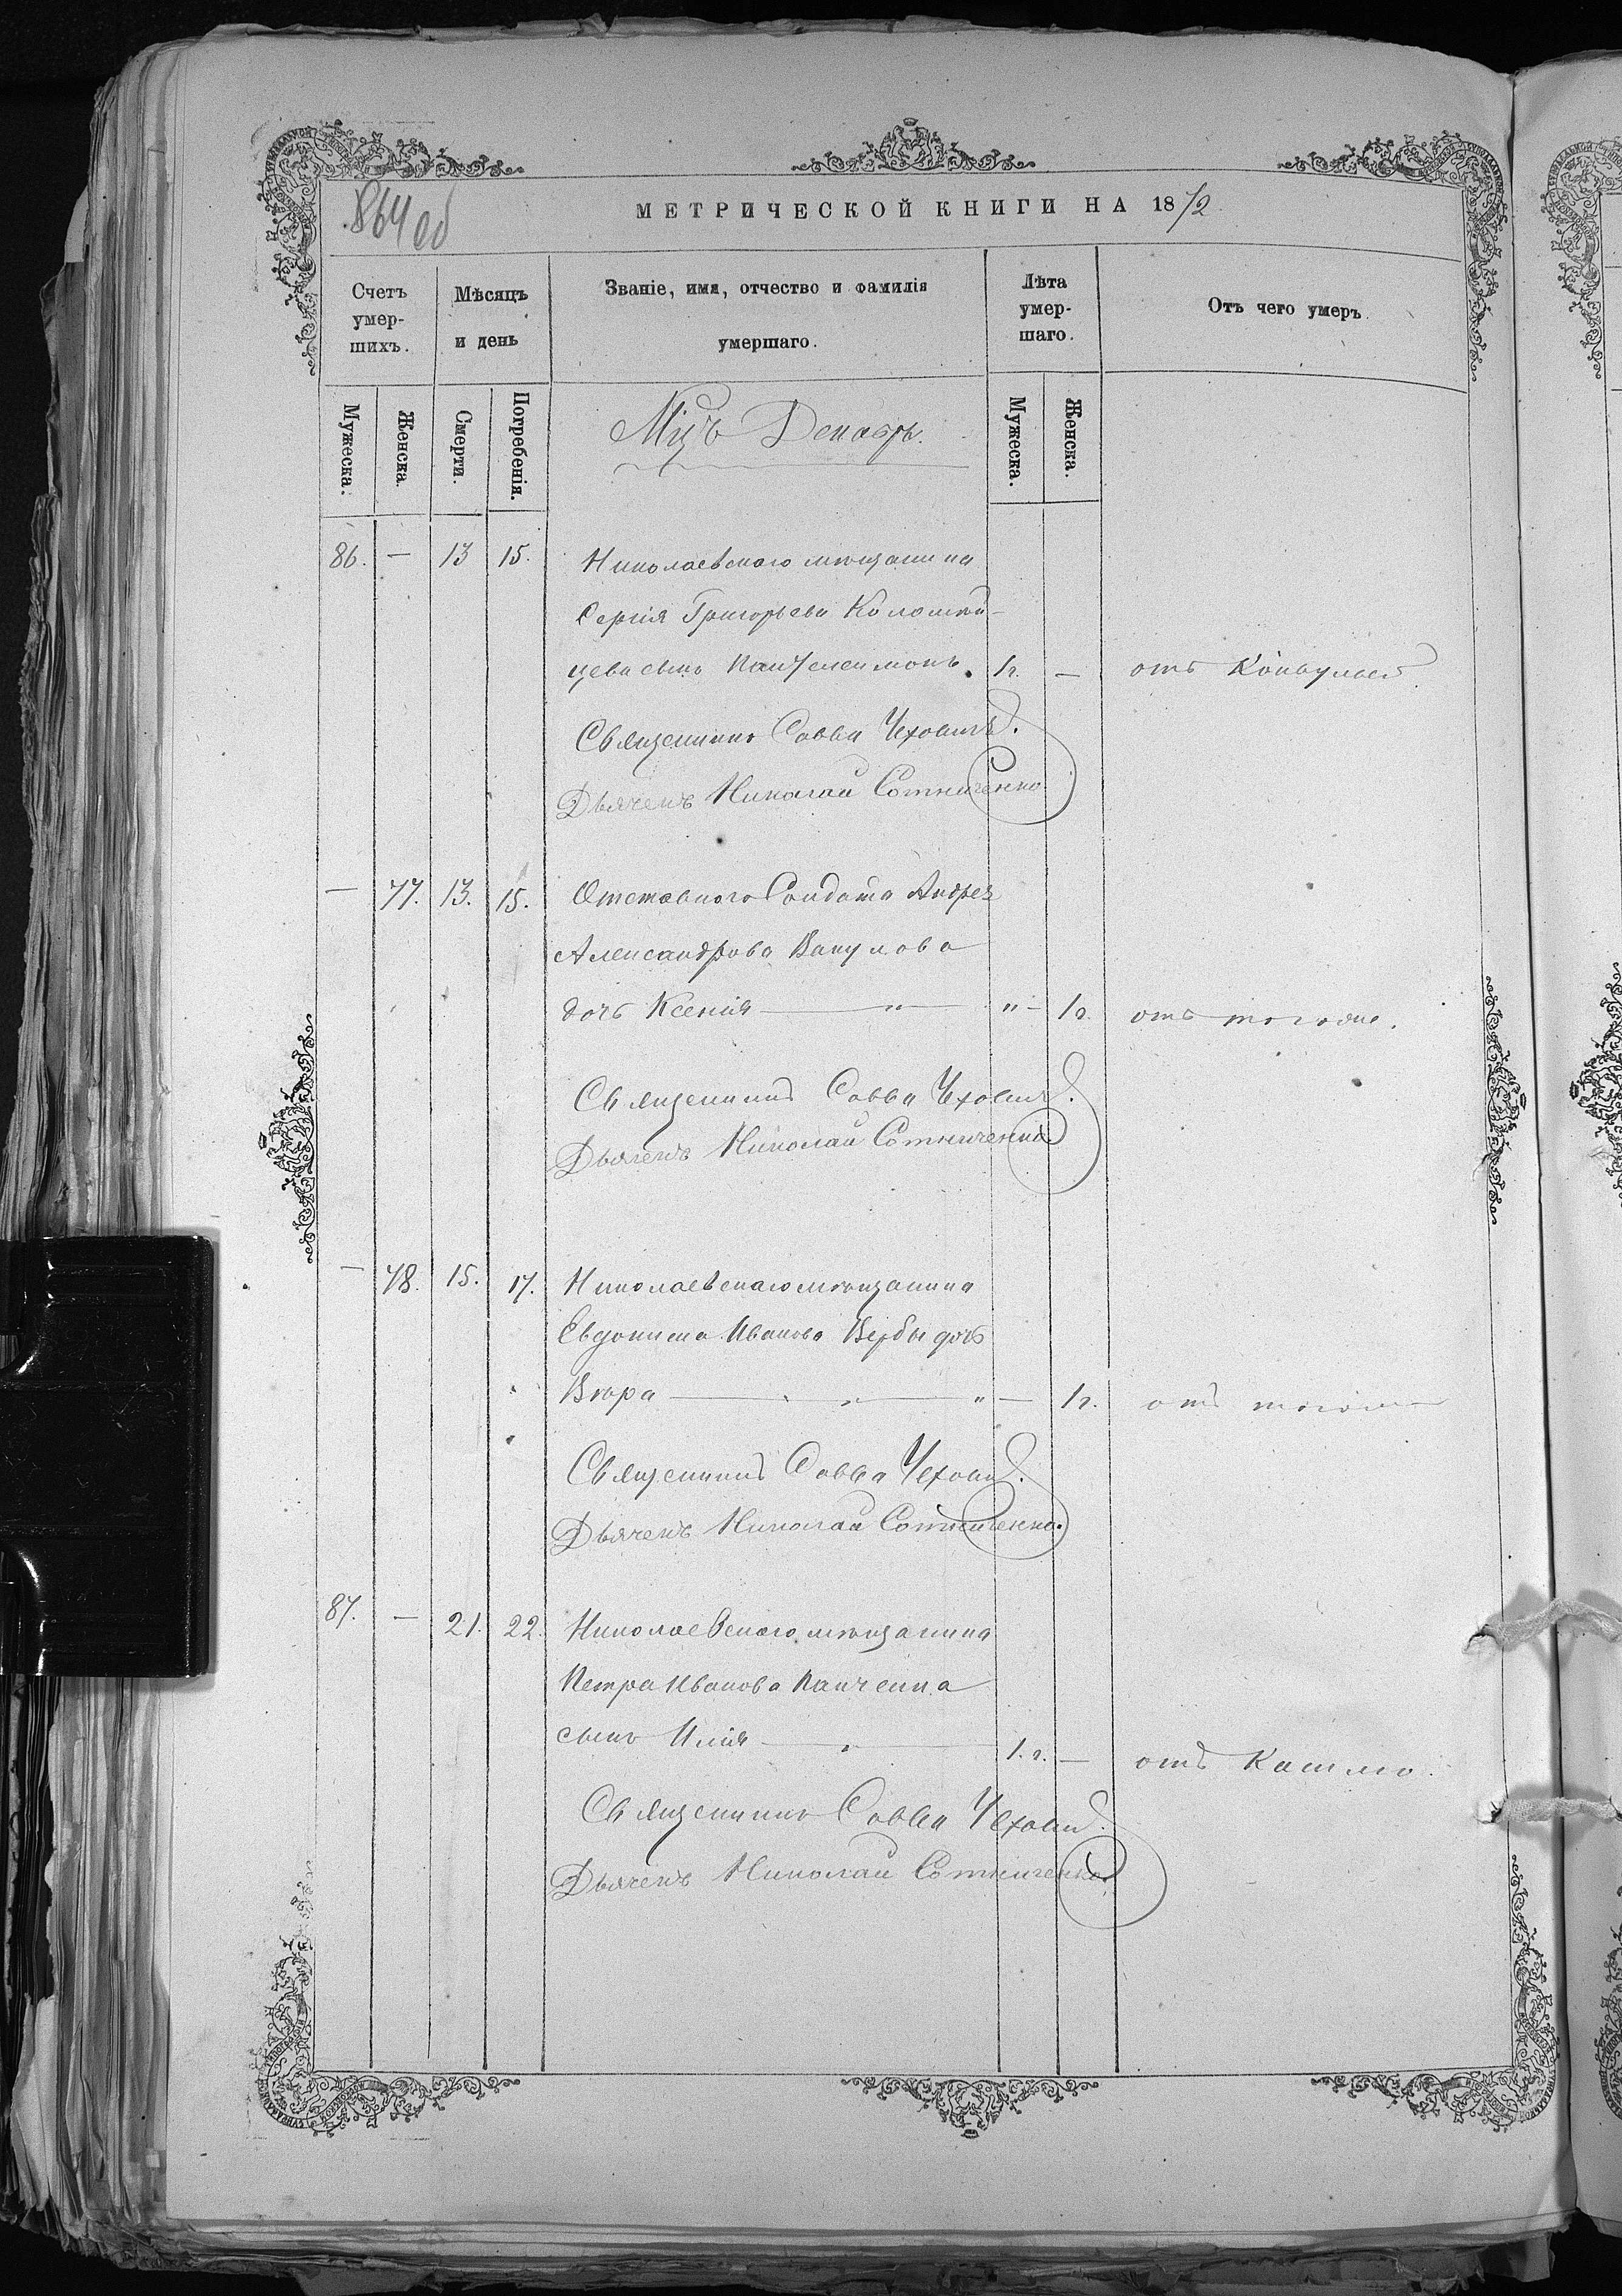 864 об
МЕТРИЧЕСКОЙ КНИГИ НА 1872
Счетъ умер-шихъ.
Мѣсяцъ и день
Званіе, имя, отчество и фамилія умершаго.
Лѣта умер-шаго.
Отъ чего умеръ.
Мужеска.
Женска.
Смерти.
Погребенія.
Мужеска.
Женска.
Мцъ Декабрь.
86. — 13 15. Николаевскаго мѣщанина
Сергія Григорьева Коломий-
цева сынъ Пантелеимонъ. 1г. — отъ Конвульсій
Священникъ Савва Чеховичъ.
Дьячекъ Николай Сотниченко
— 77. 13. 15. Отставного Солдата Андрея
Александрова Вакулова
дочь Ксенія — " — " — 1г. отъ тогоже.
Священникъ Савва Чеховичъ.
Дьячекъ Николай Сотниченко
— 78. 15. 17. Николаевскаго мѣщанина
Евдокима Иванова Вербы дочь
Вѣра — " — " — 1г. отъ тогоже
Священникъ Савва Чеховичъ.
Дьячекъ Николай Сотниченко.
87. — 21. 22. Николаевскаго мѣщанина
Петра Иванова Панченка
сынъ Илія — " — 1.г. — отъ Кашлю.
Священникъ Савва Чеховичъ.
Дьячекъ Николай Сотниченко.